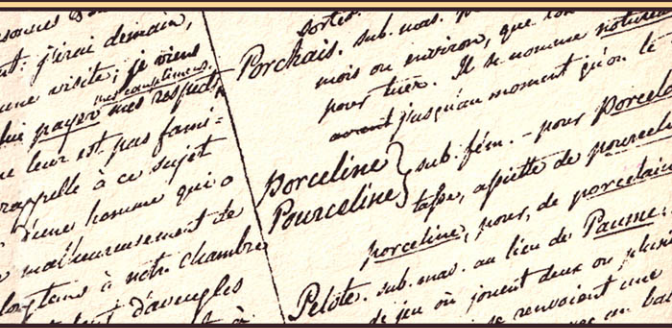 j'irai demain,
une visite; je viens
mes complimens.
lui payer mes respects,
leur est pas fami-
rappelle à ce sujet
d'une homme qui a
malheureusement de
longtems à notre chambre
d'aveugles
sortes.
Porchais. sub. mas.
mois ou environ, que l'on
pour tuer. Il se nomme
avant jusqu'au moment qu'on le
Porceline } sub. fém. - pour Porcela
Pourceline
tasse, assiette de pourcela
porceline, pour, de porcelain
Pelote. sub. mas. au lieu de Paume.
de jeu où jouent deux ou plusi
se renvoient une